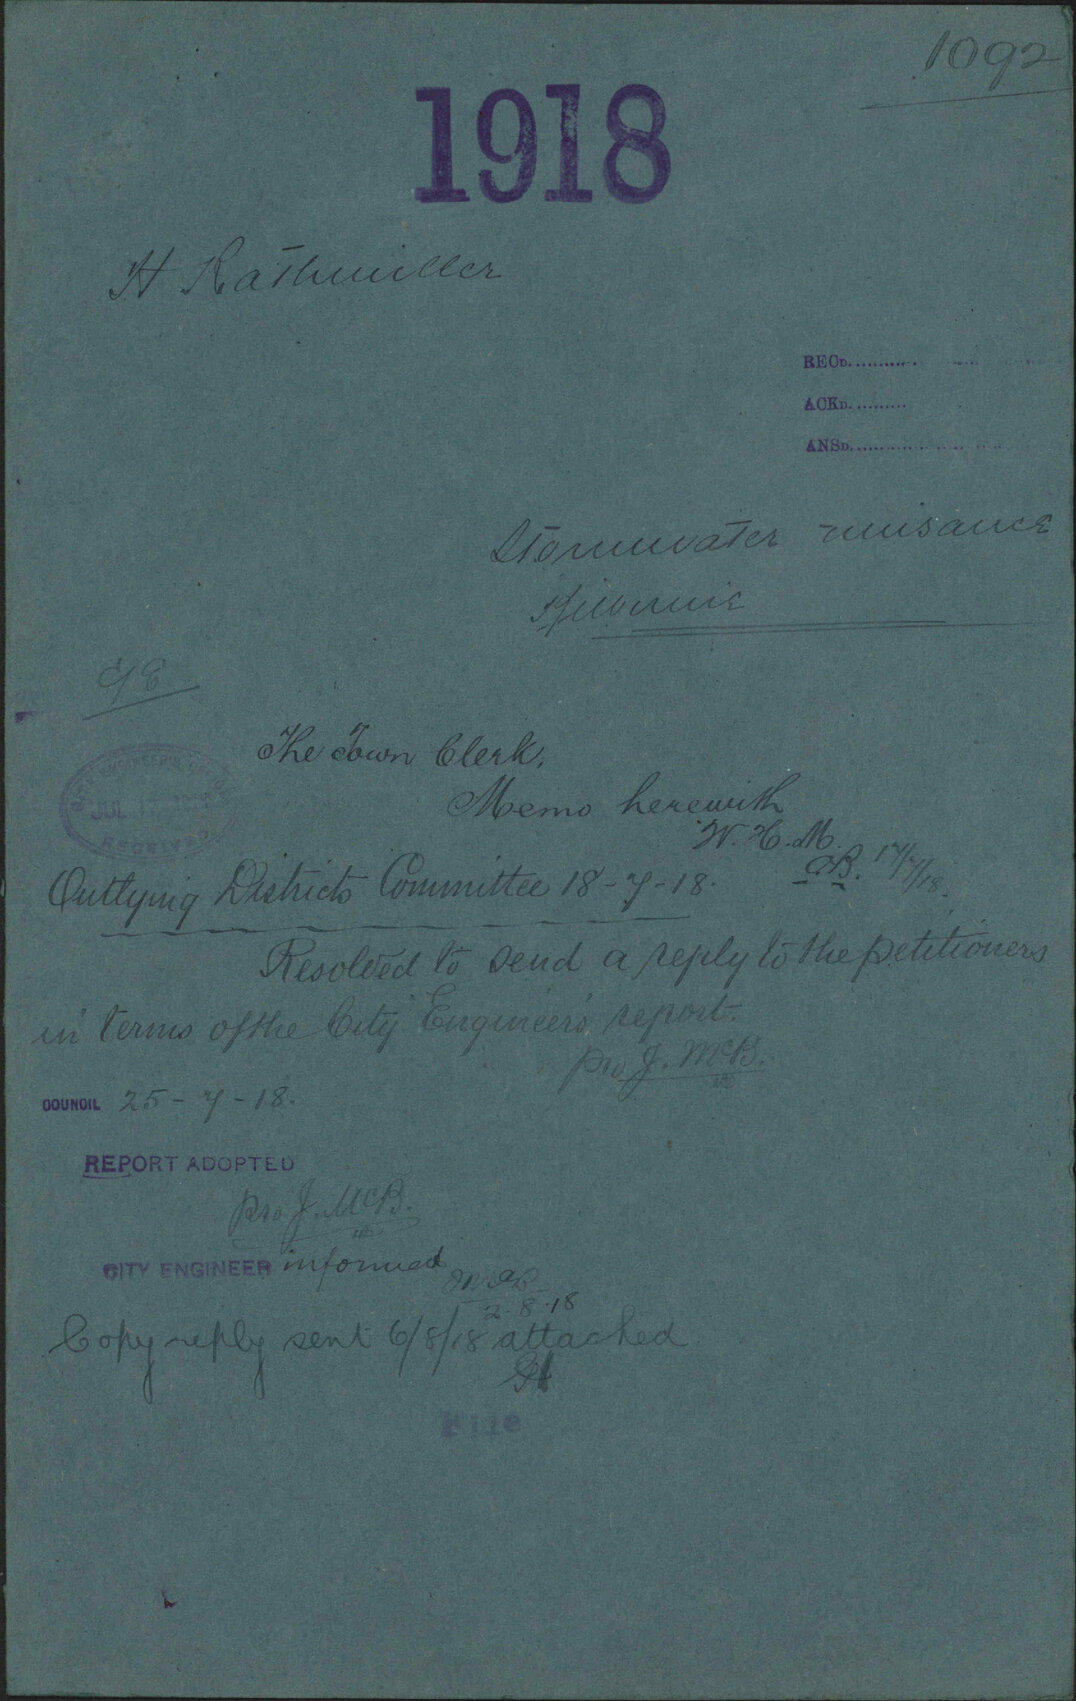 1092
1918
H Rathmiller
RECD.
ACKD.
ANSD.
Stormwater nuisance
Kilbirnie
CE
CITY ENGINEER'S OFFICE
JUL 17 1918
RECEIVED
The Town Clerk,
Memo herewith
W. H. M.
17/7/18.
Outlying Districts Committee 18-7-18.
Resolved to send a reply to the petitioners
in terms of the City Engineer's report.
pro J. McB.
COUNCIL 25-7-18.
REPORT ADOPTED
pro J. McB.
CITY ENGINEER informed
2-8-18
Copy reply sent 6/8/18 attached
File